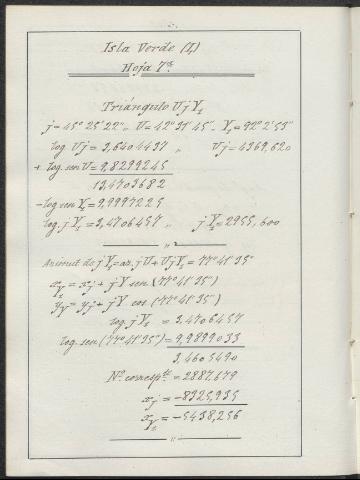 Isla Verde (I)
Hoja 7ª
Triángulo U j Y₁
j = 45° 25' 22" „ U = 42° 31' 45" „ Y₁ = 92° 2' 53"
log. Uj = 3,6404437 „ Uj = 4369,620
+ log. sen U = 9,8299245
13,4703682
- log. sen Y₁ = 9,9997225
log. j Y₁ = 3,4706457 „ j Y₁ = 2955,600
Azimut de j Y₁ = az. j U + U j Y₁ = 77° 41' 35"
x = xj + j Y sen (77° 41' 35")
y = yj + j Y cos (77° 41' 35")
log. j Y₁ = 3,4706457
log. sen (77° 41' 35") = 9,9899033
3,4605490
Nº corresp.te = 2887,679
xj = -8325,935
x = -5438,256